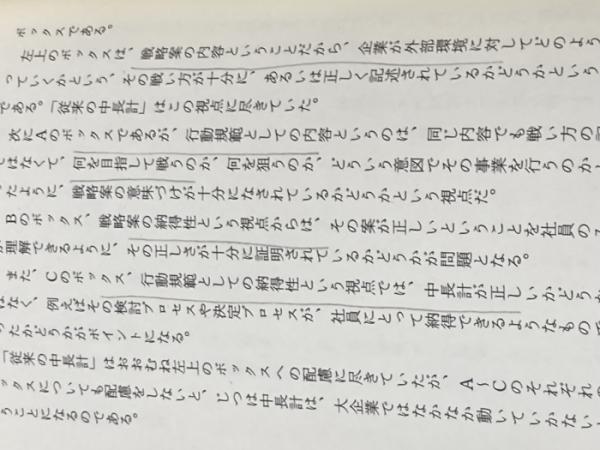 ボックスである。
左上のボックスは、戦略案の内容ということだから、企業が外部環境に対してどのよう
っていくかという、その戦い方が十分に、あるいは正しく記述されているかどうかという
である。「従来の中長計」はこの視点に尽きていた。
次にAのボックスであるが、行動規範としての内容というのは、同じ内容でも戦い方の
ではなくて、何を目指して戦うのか、何を狙うのか、どういう意図でその事業を行うのか
たように、戦略案の意味づけが十分になされているかどうかという視点だ。
Bのボックス、戦略案の納得性という視点からは、その案が正しいということを社員の
が理解できるように、その正しさが十分に証明されているかどうかが問題となる。
また、Cのボックス、行動規範としての納得性という視点では、中長計が正しいかどうか
はなく、例えばその検討プロセスや決定プロセスが、社員にとって納得できるようなもので
ったかどうかがポイントになる。
「従来の中長計」はおおむね左上のボックスへの配慮に尽きていたが、A〜Cのそれぞれの
ックスについても配慮をしないと、じつは中長計は、大企業ではなかなか動いていかない
うことになるのである。